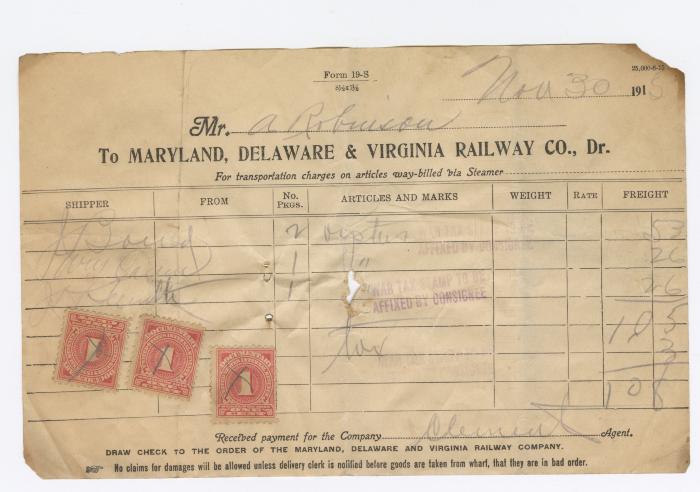 Form 19-S
8½x5½
25,000-6-15
Nov 30 191
Mr. A Robinson
To MARYLAND, DELAWARE & VIRGINIA RAILWAY CO., Dr.
For transportation charges on articles way-billed via Steamer
SHIPPER FROM No. Pkgs. ARTICLES AND MARKS WEIGHT RATE FREIGHT
2 53
AFFIXED BY CONSIGNEE
1 " 26
WAR TAX STAMP TO BE
1 26
AFFIXED BY CONSIGNEE
1 05
tax 3
1 08
Received payment for the Company Clement Agent.
DRAW CHECK TO THE ORDER OF THE MARYLAND, DELAWARE AND VIRGINIA RAILWAY COMPANY.
No claims for damages will be allowed unless delivery clerk is notified before goods are taken from wharf, that they are in bad order.